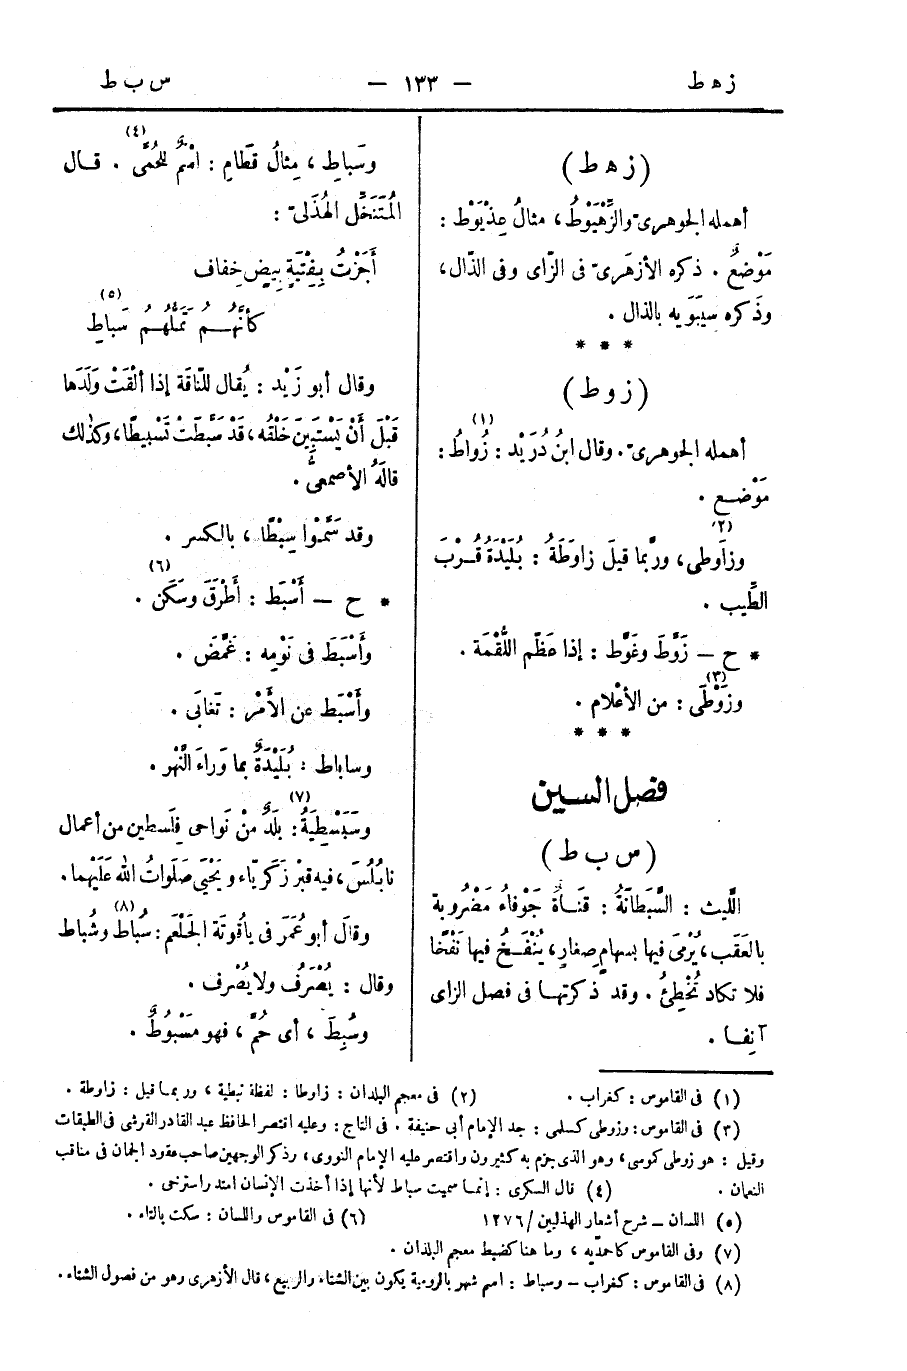 زهط — ١٣٣ — س ب ط
(زهط)
أهمله الجوهرىّ والزِّهْيَوْطُ، مثالُ عِذْيَوْط :
مَوْضعٌ . ذكره الأزهَرىّ فى الزّاى وفى الذّال،
وذَكره سِيبَوَيه بالذال .
* * *
(زوط)
أهمله الجوهرىّ . وقال ابنُ دُرَيْد : زُواطُ(١) :
مَوْضع .
وزاَوطى(٢)، وربّما قيلَ زاوَطَةُ : بُلَيْدَةُ قُرْبَ
الطِّيب .
* ح — زَوَّطَ وغَوَّط : إذا عَظّم اللُّقْمَة .
وزَوْطَى(٣) : من الأعْلام .
* * *
فصل السين
(س ب ط)
اللَّيث : السَّبَطَانَةُ : قَنـاةٌ جَوْفاءُ مَضْرُوبة
بالعَقَب، يُرْمَى فيها بسِهامٍ صِغارٍ، يُنْفَـخُ فيها نَفْخًا
فلا تكاد تُخْطِئُ . وقد ذكرتهـا فى فصل الزاى
آنِفـا .
وسَباطِ، مِثالُ قَطَامِ : اسْمٌ للحُمَّى(٤) . قـال
المُتَنَخِّل الهُذَلىّ :
أَجَزْتُ بِفِتْيَةٍ بِيضٍ خِفاف
كأنّهُـمُ تَمَلُّهُـمُ سَباطِ(٥)
وقال أبو زَيْد : يُقال للنّاقَة إذا ألْقَتْ وَلَدَها
قَبْلَ أَنْ يَسْتَبِينَ خَلْقُه، قَدْ سَبَّطَتْ تَسْبِيطًا، وكذلك
قالَهُ الأصمعىُّ .
وقد سَمَّوْا سِبْطًا، بالكسر .
* ح — أَسْبَط : أَطْرَقَ وسَكَن(٦) .
وأَسْبَطَ فى نَوْمِه : غَمَّضَ .
وأَسْبَط عن الأمْر : تَغابَى .
وساباط : بُلَيْدَةٌ بما وَراءَ النَّهْر .
وسَبَسْطِيَةُ(٧) : بلَدٌ منْ نَواحى فِلَسطين من أعمال
نابُلُسَ، فيه قبرُ زَكَرِيّاء ويَحْيَى صَلَواتُ الله عَلَيْهما .
وقالَ أبو عُمَرَ فى ياقُوتَة الجَلْعَم : سُباط(٨) وشُباط
وقال : يُصْرَفُ ولا يُصْرف .
وسُبِطَ، أى حُمَّ، فهو مَسْبُوطٌ .
(١) فى القاموس : كغراب . (٢) فى معجم البلدان : زاوطا : لفظة نبطية، وربمـا قيل : زاوطة .
(٣) فى القاموس : وزوطى كسلمى : جد الإمام أبى حنيفة . فى التاج : وعليه اقتصر الحافظ عبد القادر القرشى فى الطبقات
وقيل : هو زوطى كوسى، وهو الذى جزم به كثيرون واقتصر عليه الإمام النووى، وذكر الوجهين صاحب عقود الجمان فى مناقب
النعمان . (٤) قال السكرى : إنما سميت سباط لأنها إذا أخذت الإنسان امتد واسترخى .
(٥) اللسان – شرح أشعار الهذليين / ١٢٧٦ (٦) فى القاموس واللسان : سكت بالتاء .
(٧) وفى القاموس كأحمديّه، وما هنا كضبط معجم البلدان .
(٨) فى القاموس : كغراب – وسباط : اسم شهر بالرومية يكون بين الشتاء والربيع، قال الأزهرى وهو من فصول الشتاء .